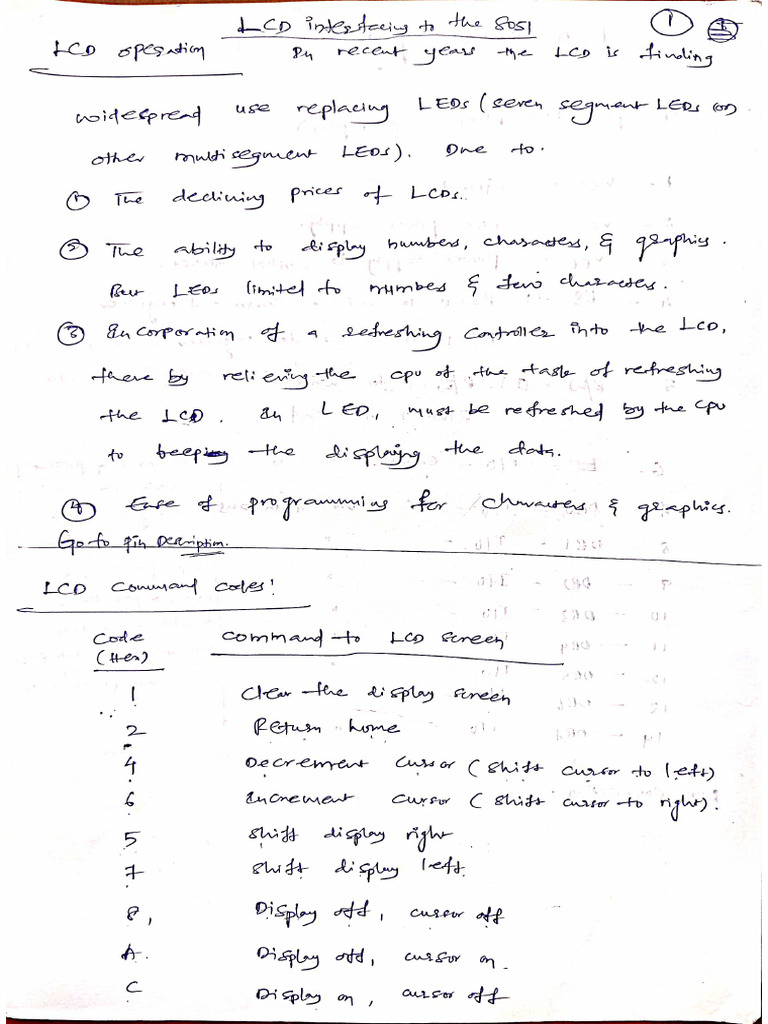 LCD interfacing to the 8051 1
LCD operation In recent years the LCD is finding
widespread use replacing LEDs (seven segment LEDs or
other multisegment LEDs). Due to.
1 The declining prices of LCDs.
2 The ability to display numbers, characters, & graphics.
But LEDs limited to numbers & few characters.
3 Incorporation of a refreshing controller into the LCD,
there by relieving the cpu of the task of refreshing
the LCD. In LED, must be refreshed by the cpu
to the displaying the data.
4 Ease of programming for characters & graphics.
Go to Pin Description.
LCD Command codes:
Code Command to LCD screen
(Hex)
1 Clear the display screen
2 Return home
4 Decrement cursor (shift cursor to left)
6 Increment cursor (shift cursor to right).
5 Shift display right
7 Shift display left
8, Display off, cursor off
A. Display off, cursor on.
C Display on, cursor off